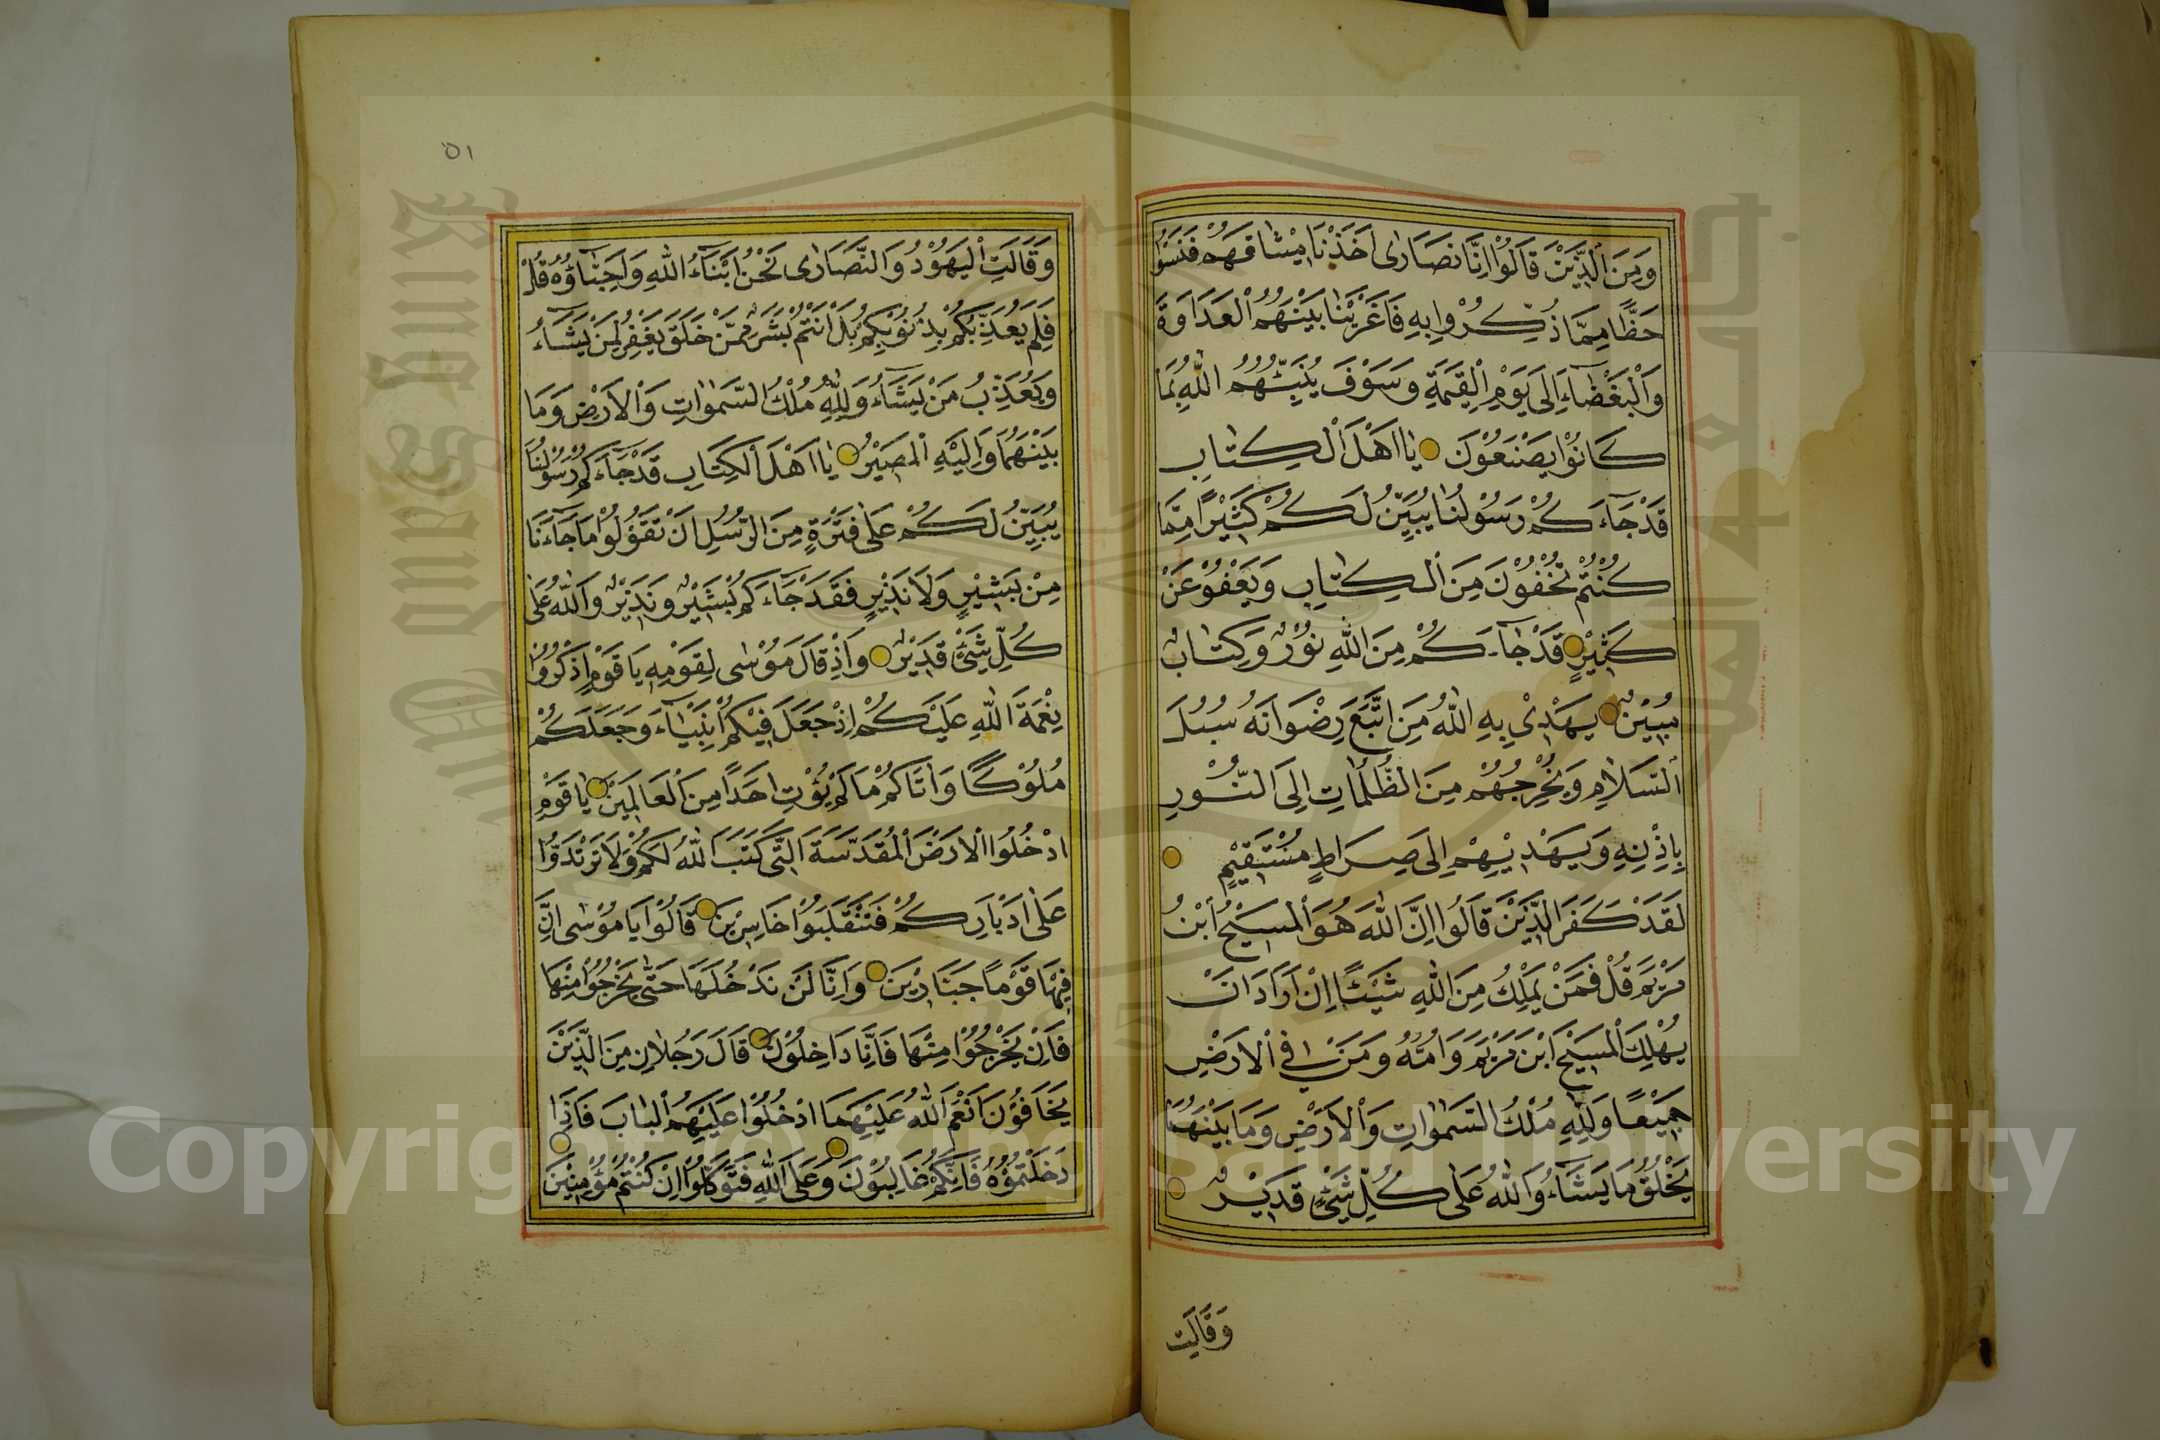 وَمِنَ الَّذِيْنَ قَالُوْا اِنَّا نَصَارٰى اَخَذْنَا مِيْثَاقَهُمْ فَنَسُوْا
حَظًّا مِمَّا ذُكِّرُوْا بِهِ فَاَغْرَيْنَا بَيْنَهُمُ الْعَدَاوَةَ
وَالْبَغْضَاءَ اِلَى يَوْمِ الْقِيٰمَةِ وَسَوْفَ يُنَبِّئُهُمُ اللّٰهُ بِمَا
كَانُوْا يَصْنَعُوْنَ يَا اَهْلَ الْكِتَابِ
قَدْ جَاءَكُمْ رَسُوْلُنَا يُبَيِّنُ لَكُمْ كَثِيْرًا مِمَّا
كُنْتُمْ تُخْفُوْنَ مِنَ الْكِتَابِ وَيَعْفُوْ عَنْ
كَثِيْرٍ قَدْ جَاءَكُمْ مِنَ اللّٰهِ نُوْرٌ وَكِتَابٌ
مُبِيْنٌ يَهْدِيْ بِهِ اللّٰهُ مَنِ اتَّبَعَ رِضْوَانَهُ سُبُلَ
السَّلَامِ وَيُخْرِجُهُمْ مِنَ الظُّلُمَاتِ اِلَى النُّوْرِ
بِاِذْنِهِ وَيَهْدِيْهِمْ اِلَى صِرَاطٍ مُسْتَقِيْمٍ
لَقَدْ كَفَرَ الَّذِيْنَ قَالُوا اِنَّ اللّٰهَ هُوَ الْمَسِيْحُ ابْنُ
مَرْيَمَ قُلْ فَمَنْ يَمْلِكُ مِنَ اللّٰهِ شَيْئًا اِنْ اَرَادَ اَنْ
يُهْلِكَ الْمَسِيْحَ ابْنَ مَرْيَمَ وَاُمَّهُ وَمَنْ فِي الْاَرْضِ
جَمِيْعًا وَلِلّٰهِ مُلْكُ السَّمٰوَاتِ وَالْاَرْضِ وَمَا بَيْنَهُمَا
يَخْلُقُ مَا يَشَاءُ وَاللّٰهُ عَلٰى كُلِّ شَيْءٍ قَدِيْرٌ
وَقَالَتِ
٥١
وَقَالَتِ الْيَهُوْدُ وَالنَّصَارٰى نَحْنُ اَبْنَاءُ اللّٰهِ وَاَحِبَّاؤُهُ قُلْ
فَلِمَ يُعَذِّبُكُمْ بِذُنُوْبِكُمْ بَلْ اَنْتُمْ بَشَرٌ مِمَّنْ خَلَقَ يَغْفِرُ لِمَنْ يَشَاءُ
وَيُعَذِّبُ مَنْ يَشَاءُ وَلِلّٰهِ مُلْكُ السَّمٰوَاتِ وَالْاَرْضِ وَمَا
بَيْنَهُمَا وَاِلَيْهِ الْمَصِيْرُ يَا اَهْلَ الْكِتَابِ قَدْ جَاءَكُمْ رَسُوْلُنَا
يُبَيِّنُ لَكُمْ عَلٰى فَتْرَةٍ مِنَ الرُّسُلِ اَنْ تَقُوْلُوْا مَا جَاءَنَا
مِنْ بَشِيْرٍ وَلَا نَذِيْرٍ فَقَدْ جَاءَكُمْ بَشِيْرٌ وَنَذِيْرٌ وَاللّٰهُ عَلٰى
كُلِّ شَيْءٍ قَدِيْرٌ وَاِذْ قَالَ مُوْسٰى لِقَوْمِهِ يَا قَوْمِ اذْكُرُوْا
نِعْمَةَ اللّٰهِ عَلَيْكُمْ اِذْ جَعَلَ فِيْكُمْ اَنْبِيَاءَ وَجَعَلَكُمْ
مُلُوْكًا وَاٰتَاكُمْ مَا لَمْ يُؤْتِ اَحَدًا مِنَ الْعَالَمِيْنَ يَا قَوْمِ
ادْخُلُوا الْاَرْضَ الْمُقَدَّسَةَ الَّتِيْ كَتَبَ اللّٰهُ لَكُمْ وَلَا تَرْتَدُّوْا
عَلٰى اَدْبَارِكُمْ فَتَنْقَلِبُوْا خَاسِرِيْنَ قَالُوْا يَا مُوْسٰى اِنَّ
فِيْهَا قَوْمًا جَبَّارِيْنَ وَاِنَّا لَنْ نَدْخُلَهَا حَتّٰى يَخْرُجُوْا مِنْهَا
فَاِنْ يَخْرُجُوْا مِنْهَا فَاِنَّا دَاخِلُوْنَ قَالَ رَجُلَانِ مِنَ الَّذِيْنَ
يَخَافُوْنَ اَنْعَمَ اللّٰهُ عَلَيْهِمَا ادْخُلُوْا عَلَيْهِمُ الْبَابَ فَاِذَا
دَخَلْتُمُوْهُ فَاِنَّكُمْ غَالِبُوْنَ وَعَلَى اللّٰهِ فَتَوَكَّلُوْا اِنْ كُنْتُمْ مُؤْمِنِيْنَ
King Saud University
جامعة الملك سعود
1957
Copyright © King Saud University